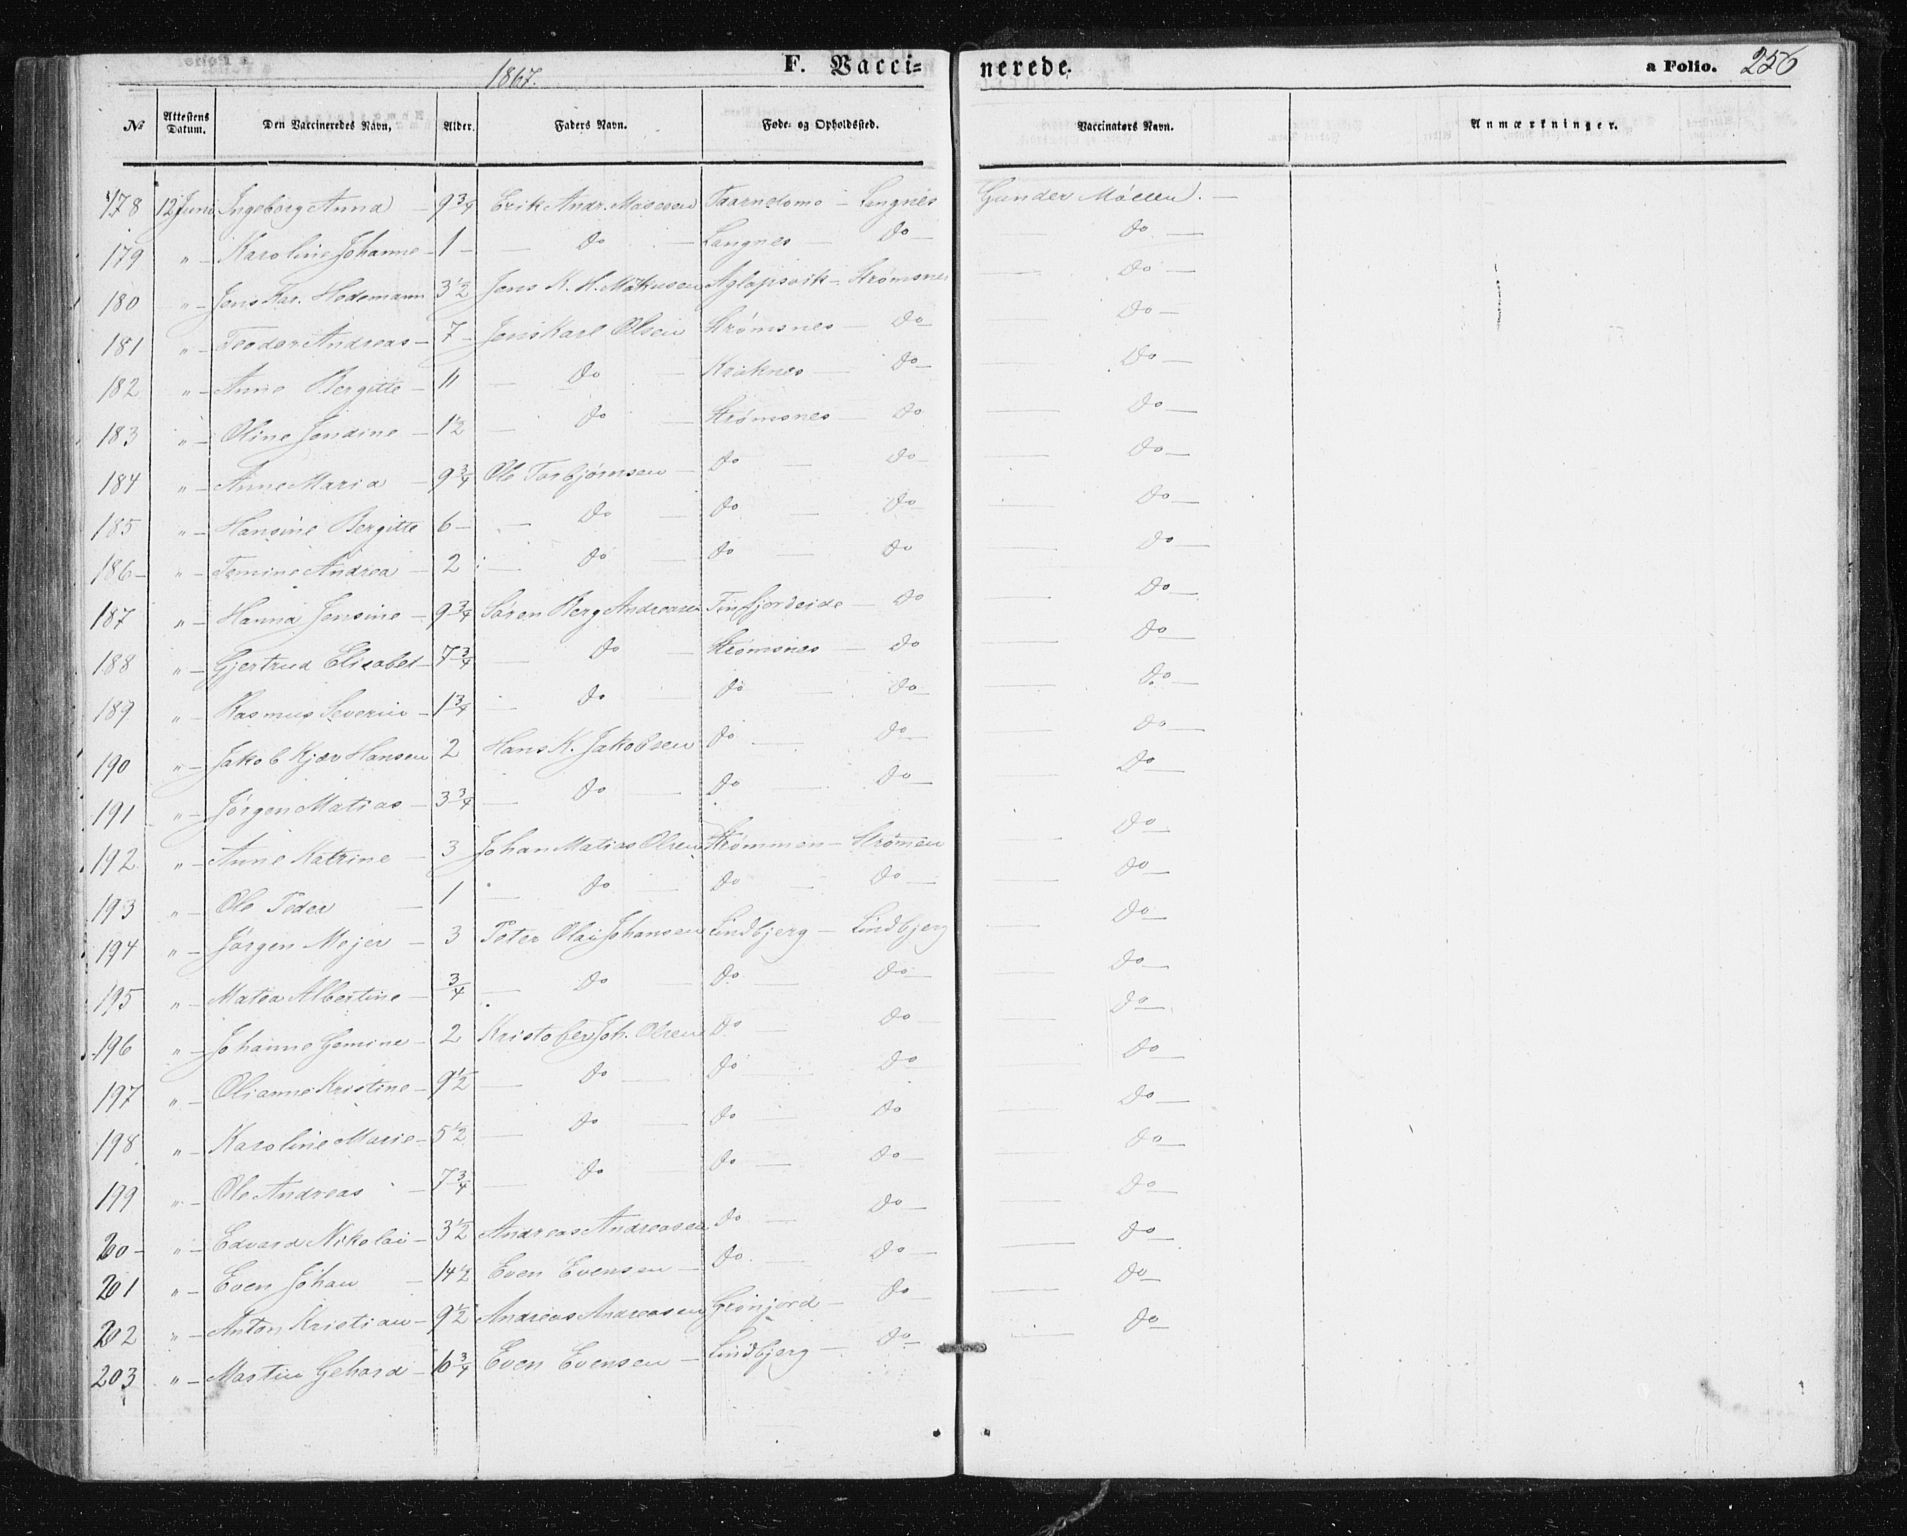 1867.
F. Vacci=
nerede.
a Folio. 256
No Attestens Datum. Den Vaccineredes Navn, Alder. Faders Navn. Føde- og Opholdssted. Vaccinators Navn. Anmærkninger.
178 12 Juni Ingeborg Anna — 9 3/4 Erik Andr. — Lengnes Gunder —
179 " — Karoline Johanne — 1 — — do — Langnes do — — do —
180 " — Jens Kar. Hedemann 3 1/2 Jens K. H. Aglapsvik — Strømsnes — do —
181 " — Teodor Andreas — 7 — Jens Karl Olsen Strømsnes — do — — do —
182 " — Anne Bergitte — 11 — do — Kraknes — do — — do —
183 " — Oline Jendine — 1 1/2 — do — Strømsnes — do — do —
184 " — Anne Maria — 9 3/4 Ole Torbjørnsen — do — do — — do —
185 " — Hansine Bergitte 6 — — do — do — do — do —
186 — " — Andrea — 2 — do — do — do — do —
187 " — Hanna Jensine — 9 3/4 Søren Berg Andreasen Finfjordeide — do — do —
188 " — Gjertrud Elisabet — 7 3/4 — do — Strømsnes — do — do —
189 " — Rasmus Severin — 1 3/4 — do — do — do — — do —
190 " — Jakob Kjær Hansen 2 Hans K. Jakobsen do — do — — do —
191 " — Jørgen Matias — 3 3/4 — do — do — do — do
192 " — Anne Katrine — 3 Johan Matias Olsen Strømmen — Strømen — do —
193 " — Ole Peder — 1 — do — do — do — — do —
194 " — Jørgen Mejer — 3 Peter Olai Johansen Lindbjerg — Lindbjerg — do —
195 " — Matea Albertine — 3/4 — do — do — do — — do —
196 " — Johanne — 2 Kristofer Joh. Olsen do — do — — do —
197 " — Olianne Kristine — 9 1/2 — do — do — do — — do —
198 " — Karoline Marie — 5 1/2 — do — do — do — do —
199 " — Ole Andreas — 7 3/4 — do — do — do — — do —
20 — " — Edvard Nikolai — 3 1/2 Andreas Andreasen do — do — — do —
201 " — Even Johan — 14 1/2 Even Evensen — do — do — — do —
202 " — Anton Kristian — 9 1/2 Andreas Andreasen Grønjord — do — — do —
203 " — Martin Gehard — 6 3/4 Even Evensen — Lindbjerg — do — — do —